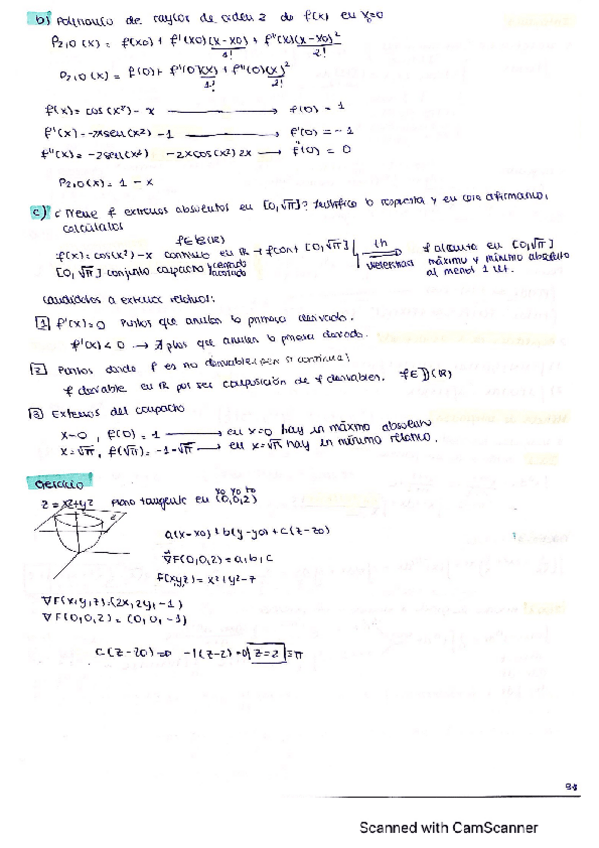 b) Polinomio de Taylor de orden 2 de f(x) en x=0
P2,0 (x) = f(x0) + f'(x0)(x-x0)/1! + f''(x)(x-x0)²/2!
P2,0 (x) = f(0) + f'(0)(x)/1! + f''(0)(x)²/2!
f(x) = cos(x²) - x → f(0) = 1
f'(x) = -2xsen(x²) - 1 → f'(0) = -1
f''(x) = -2sen(x²) - 2xcos(x²)2x → f''(0) = 0
P2,0(x) = 1 - x
c) ¿Tiene f extremos absolutos en [0,√π]? Justifica la respuesta y en caso afirmativo,
calcúlalos
f∈C(R)
f(x) = cos(x²) - x continuo en R → f cont [0,√π]
[0,√π] conjunto compacto cerrado acotado
th Weierstrass
f alcanza en [0,√π] máximo y mínimo absoluto al menos 1 vez.
candidatos a extremos relativos:
1 f'(x)=0 Puntos que anulan la primera derivada.
f'(x)<0 → ∄ ptos que anulan la primera derivada.
2 Puntos donde f es no derivable (pero sí continua)
f derivable en R por ser composición de f derivables. f∈D(R)
3 Extremos del compacto
x=0, f(0)=1 → en x=0 hay un máximo absoluto
x=√π, f(√π)=-1-√π → en x=√π hay un mínimo relativo.
Ejercicio
z = x²+y² Plano tangente en (0,0,2) x0 y0 z0
a(x-x0)+b(y-y0)+c(z-z0)
∇F(0,0,2) = a,b,c
F(x,y,z) = x²+y²-z
∇F(x,y,z)=(2x,2y,-1)
∇F(0,0,2) = (0,0,-1)
c(z-z0)=0 -1(z-2)=0 z=2 ≡π
Scanned with CamScanner